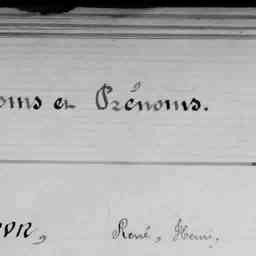 oms et Prénoms.
René, Henri,